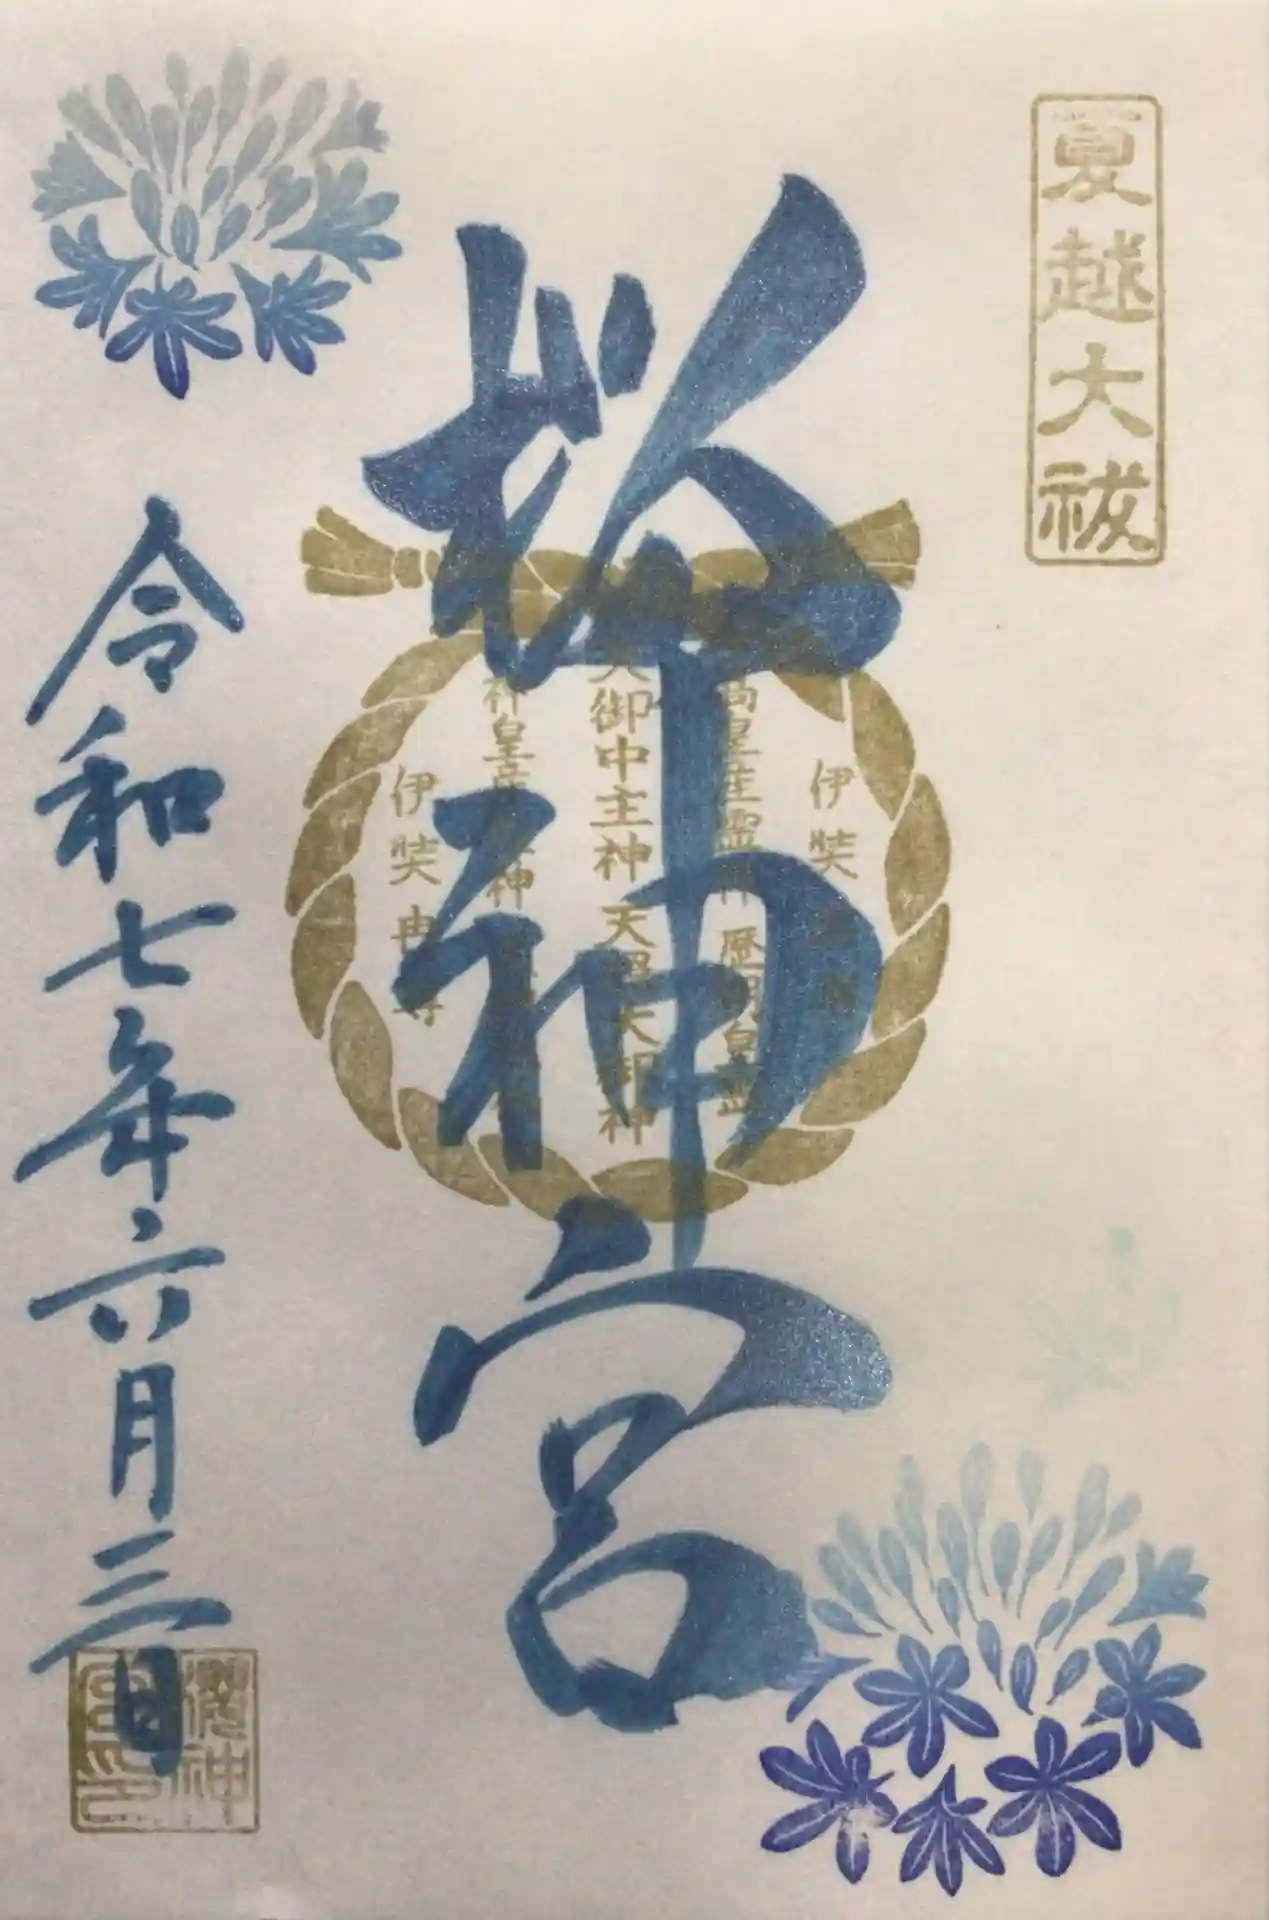 夏越大祓
桜神宮
伊弉
高皇産霊神 歴朝皇霊
天御中主神 天照大御神
神皇産霊神
伊弉冉尊
令和七年六月三日
櫻神
宮印